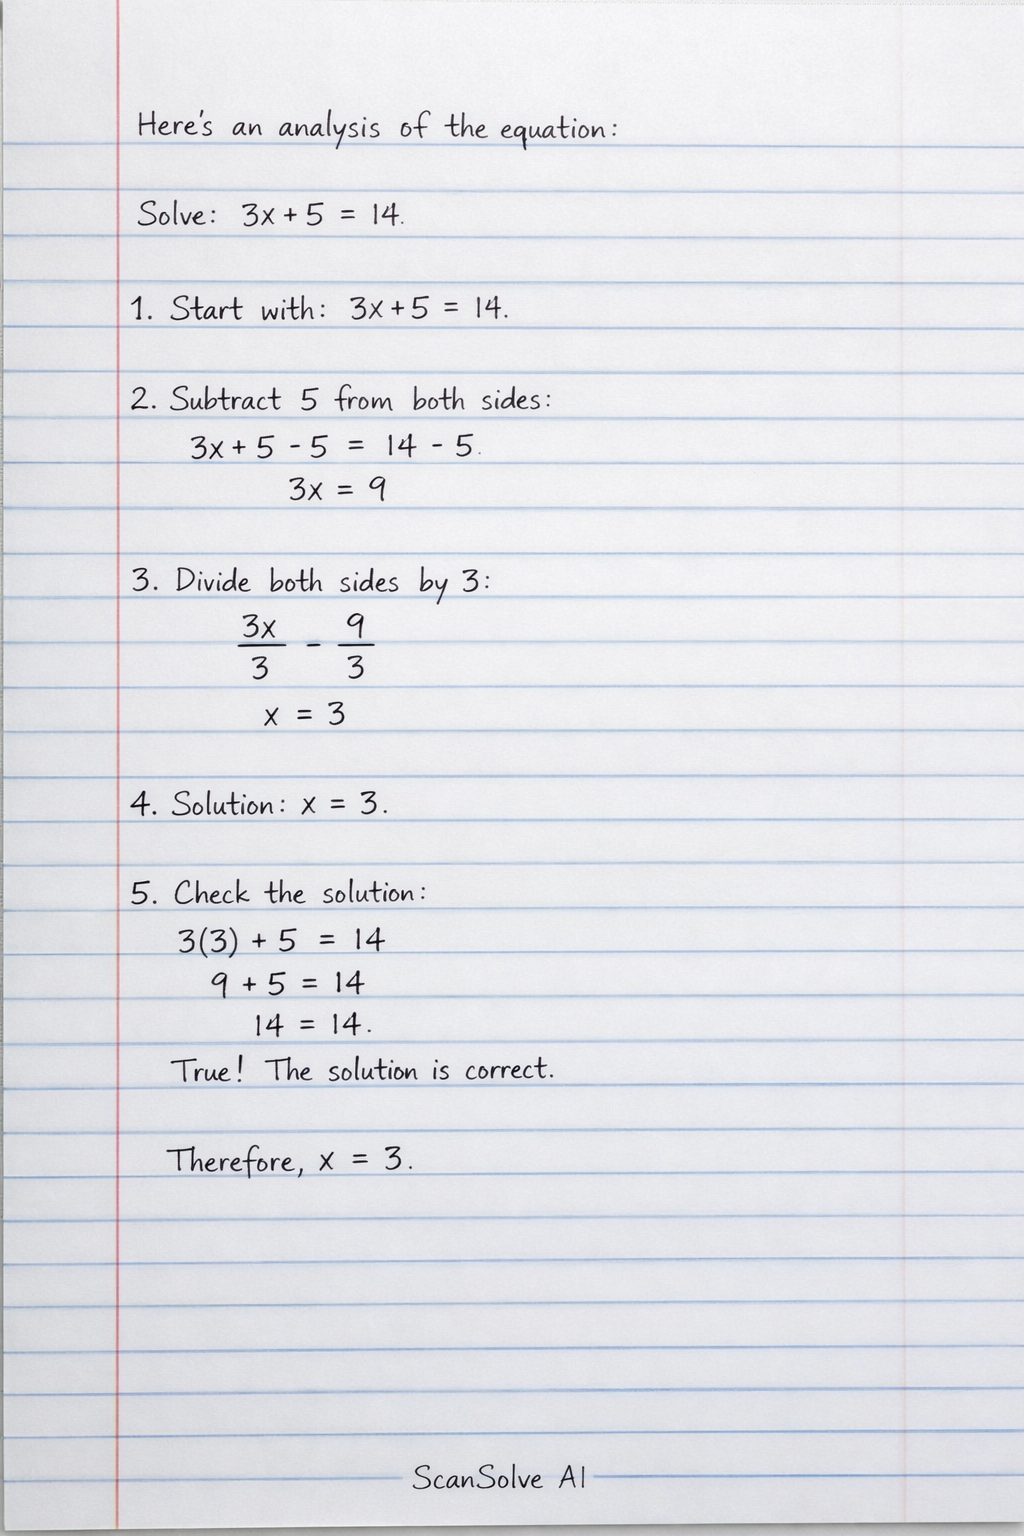 Here's an analysis of the equation:
Solve: 3x + 5 = 14.
1. Start with: 3x + 5 = 14.
2. Subtract 5 from both sides:
3x + 5 - 5 = 14 - 5.
3x = 9
3. Divide both sides by 3:
3x/3 - 9/3
x = 3
4. Solution: x = 3.
5. Check the solution:
3(3) + 5 = 14
9 + 5 = 14
14 = 14.
True! The solution is correct.
Therefore, x = 3.
ScanSolve AI